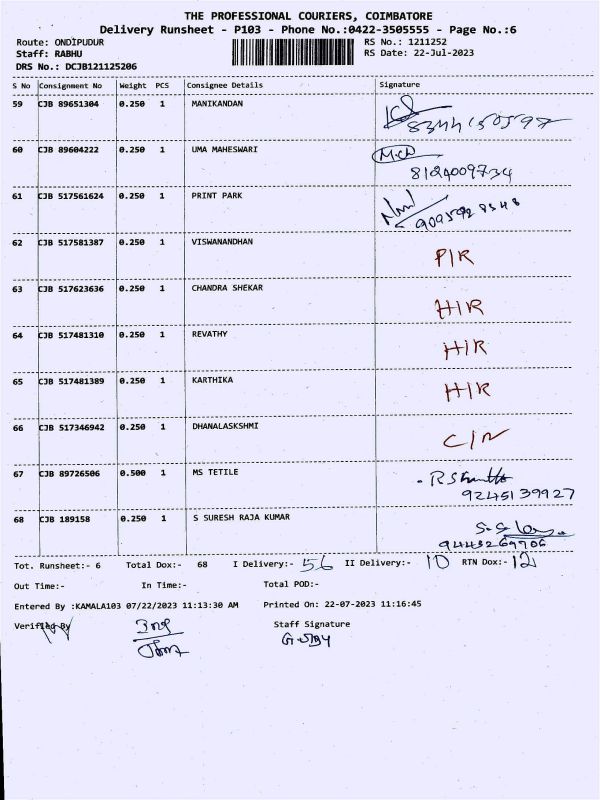 THE PROFESSIONAL COURIERS, COIMBATORE
Delivery Runsheet - P103 - Phone No.:0422-3505555 - Page No.:6
Route: ONDIPUDUR RS No.: 1211252
Staff: RABHU RS Date: 22-Jul-2023
DRS No.: DCJB121125206
S No Consignment No Weight PCS Consignee Details Signature
59 CJB 89651304 0.250 1 MANIKANDAN
60 CJB 89604222 0.250 1 UMA MAHESWARI M.ch
8124009734
61 CJB 517561624 0.250 1 PRINT PARK
62 CJB 517581387 0.250 1 VISWANANDHAN P/R
63 CJB 517623636 0.250 1 CHANDRA SHEKAR H/R
64 CJB 517481310 0.250 1 REVATHY H/R
65 CJB 517481389 0.250 1 KARTHIKA H/R
66 CJB 517346942 0.250 1 DHANALASKSHMI C/N
67 CJB 89726506 0.500 1 MS TETILE
9245139927
68 CJB 189158 0.250 1 S SURESH RAJA KUMAR
9443269906
Tot. Runsheet:- 6 Total Dox:- 68 I Delivery:- 56 II Delivery:- 10 RTN Dox:- 12
Out Time:- In Time:- Total POD:-
Entered By :KAMALA103 07/22/2023 11:13:30 AM Printed On: 22-07-2023 11:16:45
Verified By Staff Signature